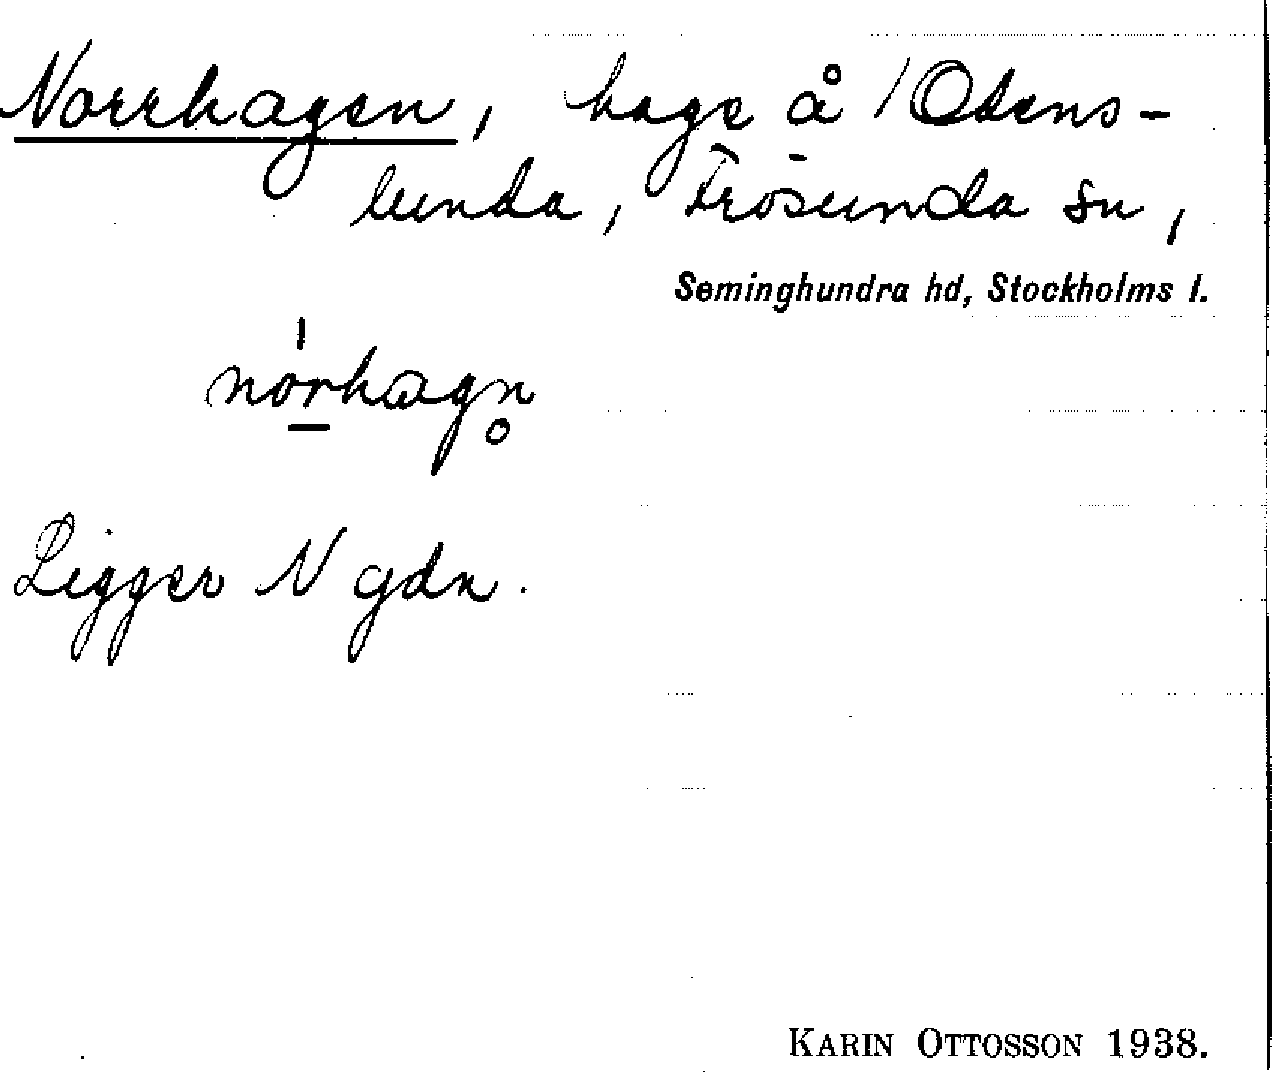 Norrhagen, hage å /Odens-
lunda, Frösunda sn,
Seminghundra hd, Stockholms l.
nórhagn̥
Ligger N gdn.
KARIN OTTOSSON 1938.